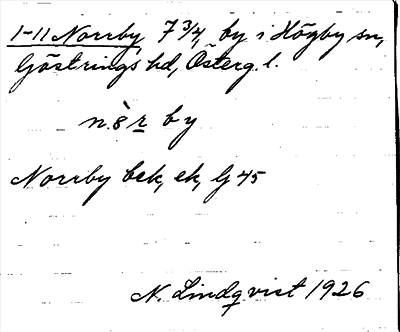 1-11 Norrby, 7 3/4, by i Högby sn,
Göstrings hd, Österg. l.
n.è̤r by
Norrby bek, ek, G 45
N. Lindqvist 1926